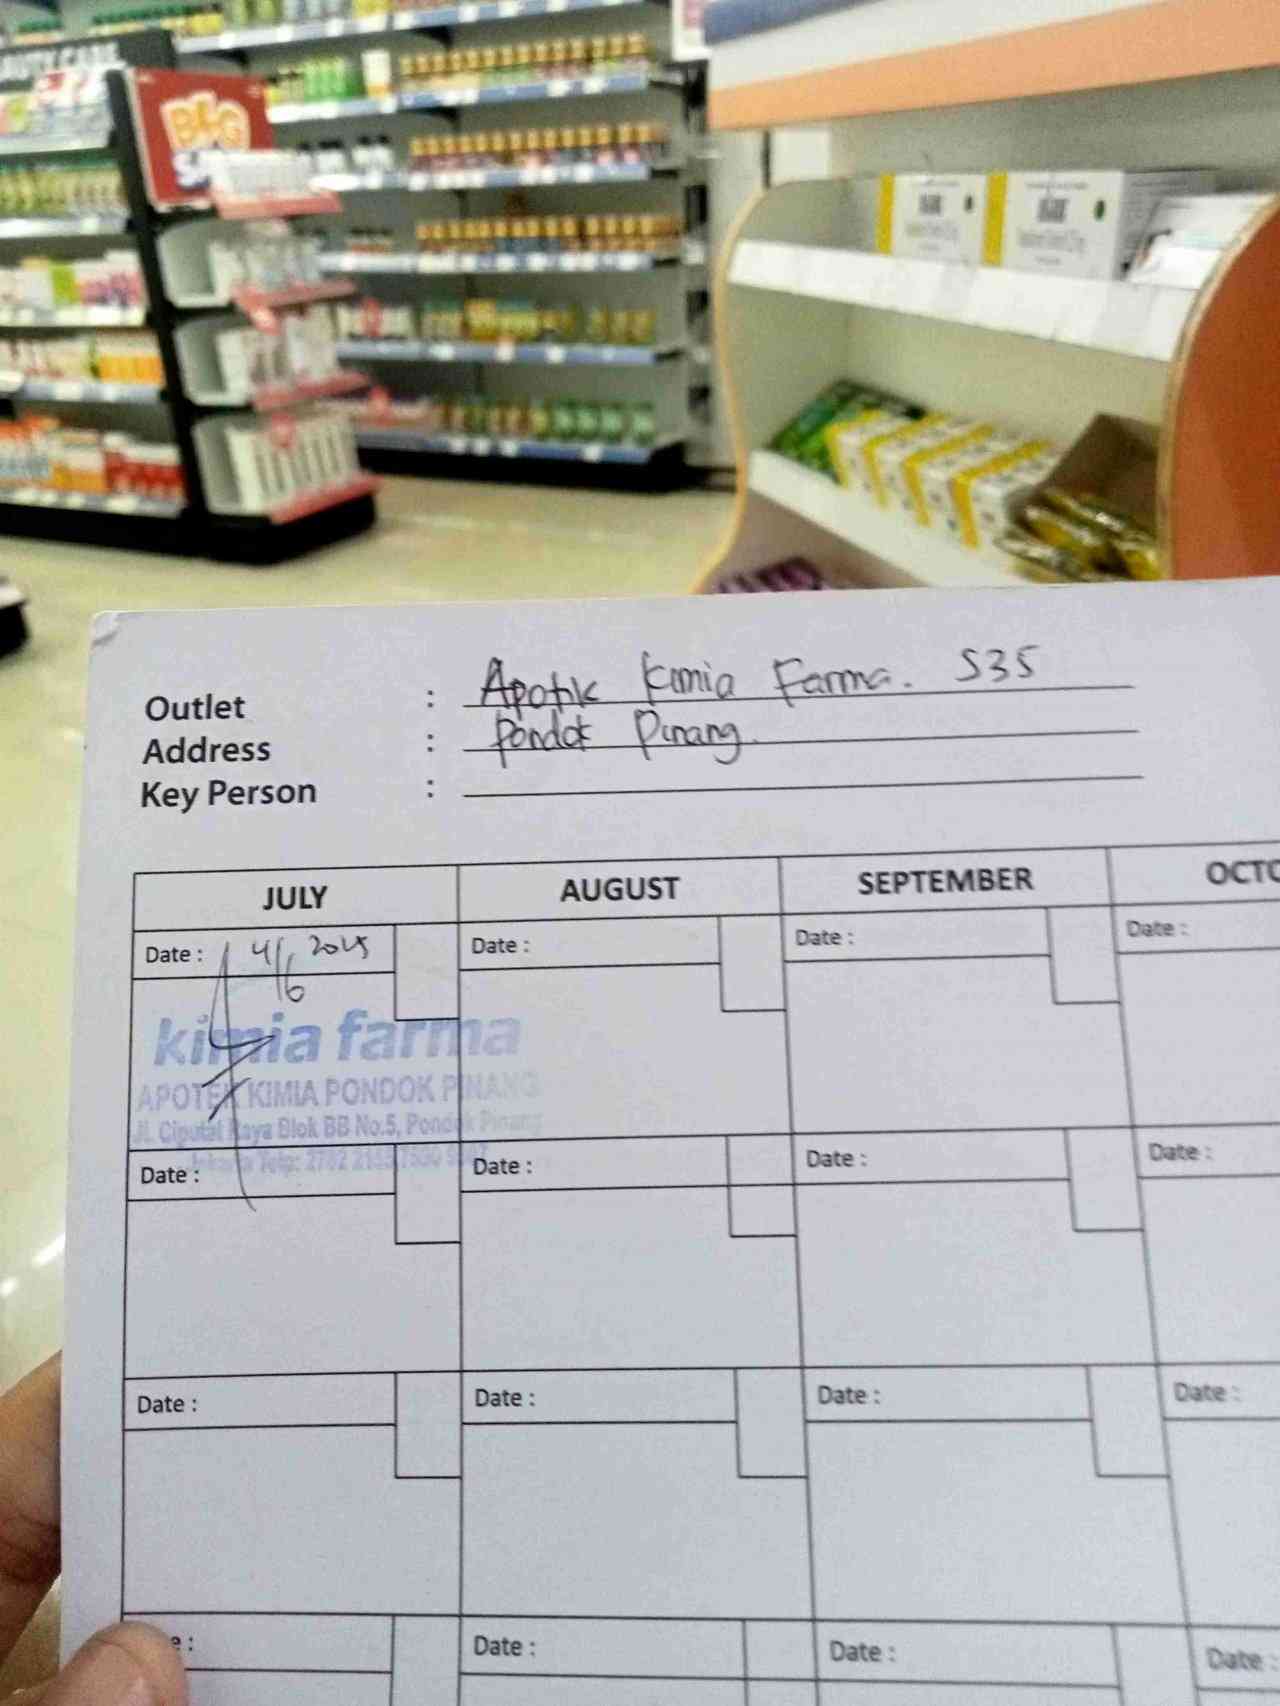 BIG
Outlet : Apotik Kimia Farma. 535
Address : Pondok Pinang.
Key Person :
JULY AUGUST SEPTEMBER OCTO
Date : 4/6 2025 Date : Date : Date :
kimia farma
APOTEK KIMIA PONDOK PINANG
Jl. Ciputat Raya Blok BB No.5, Pondok Pinang
Jakarta Telp:
Date : Date : Date : Date :
Date : Date : Date : Date :
e : Date : Date : Date :